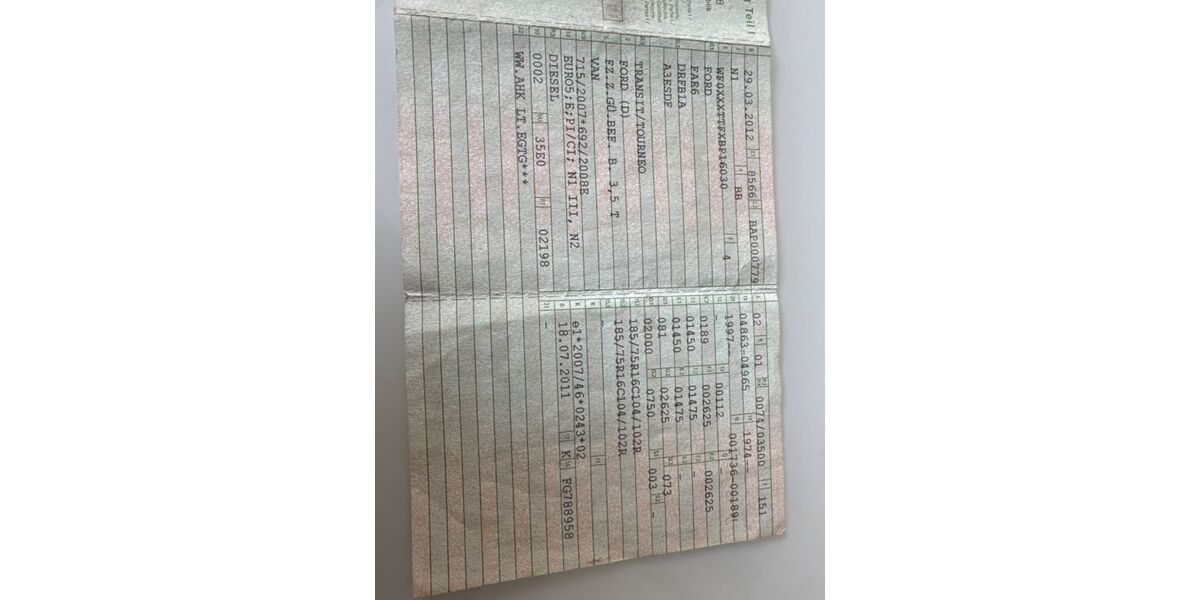 g Teil I
29.03.2012 8566 BAP000779
N1 BB
WF0XXXTTFXBP16030 4
FORD
FAE6
DRFB1A
A3ESDF
TRANSIT/TOURNEO
FORD (D)
FZ.Z.GÜ.BEF. B. 3,5 T
VAN
715/2007*692/2008E
EURO5;E;PI/CI; N1 III, N2
DIESEL
0002 35E0 02198
WW.AHK LT.EGTG***
02 01 0074/03500 151
04863-04965 1974--
1997-- 001736-00189
- 00112 -
0189 002625 002625
01450 01475 -
01450 01475 -
081 02625 073
02000 0750 003 -
185/75R16C104/102R
185/75R16C104/102R
-
e1*2007/46*0243*02
18.07.2011 K FG788958
-